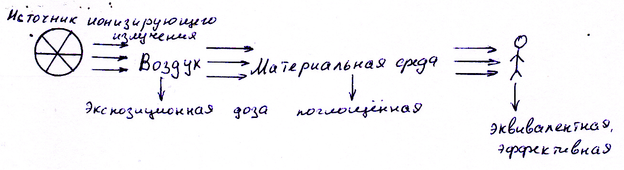 Источник ионизирующего
излучения
Воздух Материальная среда
экспозиционная доза поглощённая
эквивалентная,
эффективная